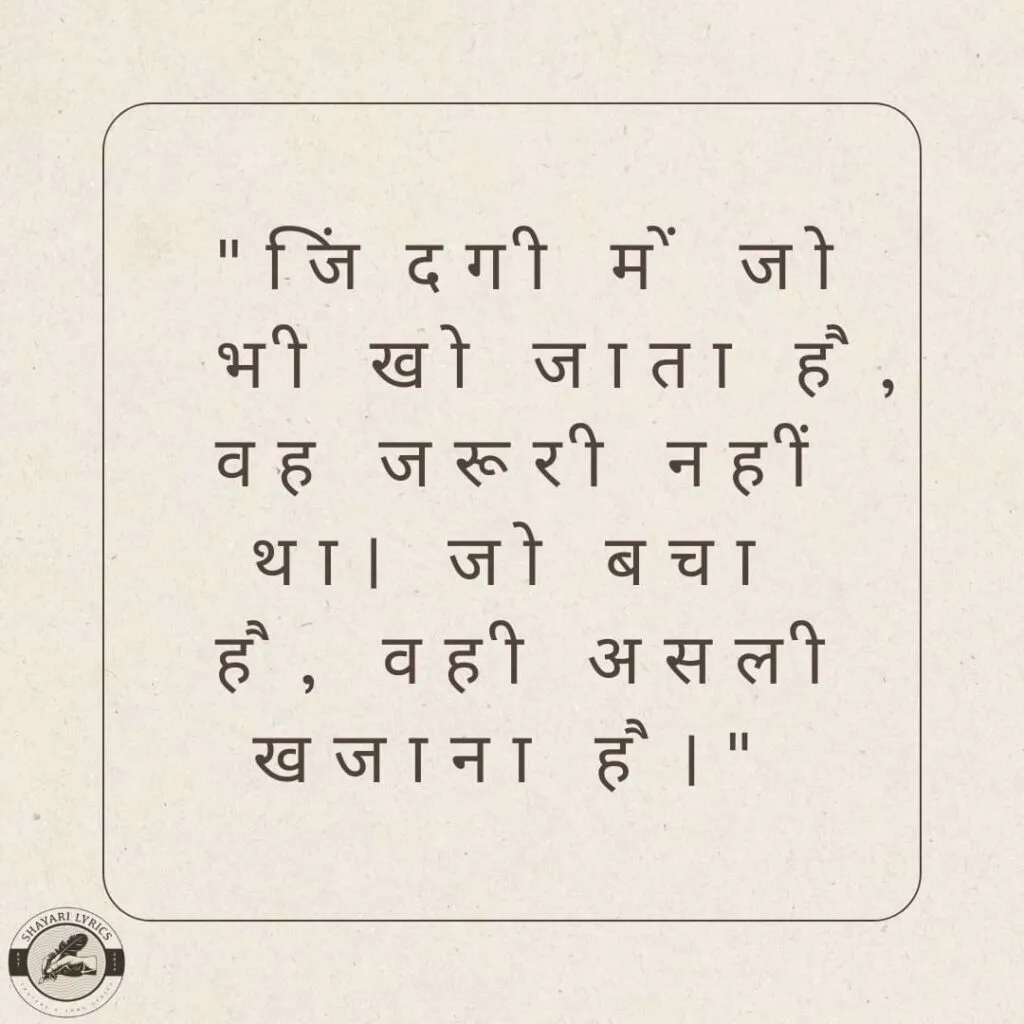 "जिंदगी में जो
भी खो जाता है,
वह जरूरी नहीं
था। जो बचा
है, वही असली
खजाना है।"
SHAYARI LYRICS